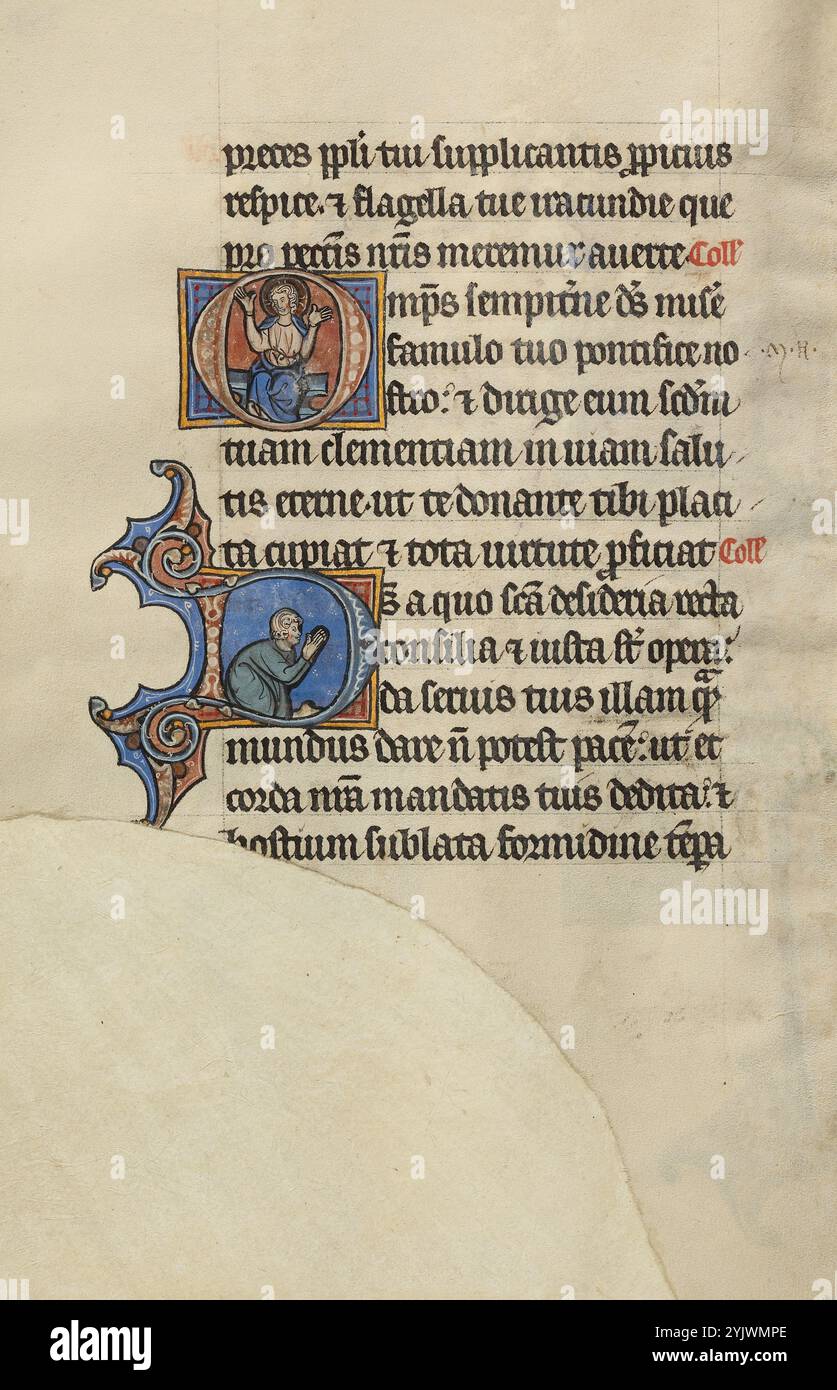 preces ppl̃i tui supplicantis ꝓpicius
respice. ⁊ flagella tue iracundie que
pro pecc̃is nr̃is meremur auerte. Coll̃
Omp̃s sempit̃ne ds̃ mise
famulo tuo pontifice no
stro: ⁊ dirige eum scd̃m
tuam clementiam in uiam salu
tis eterne. ut te donante tibi placi
ta cupiat ⁊ tota uirtute ꝓficiat Coll̃
Ds̃ a quo sc̃a desideria recta
consilia ⁊ iusta st̃ opera:
da seruis tuis illam quã
mundus dare ñ potest pacẽ: ut et
corda nr̃a mandatis tuis dedita: ⁊
hostium sublata formidine tẽpa
alamy
Image ID: 2YJWMPE
www.alamy.com